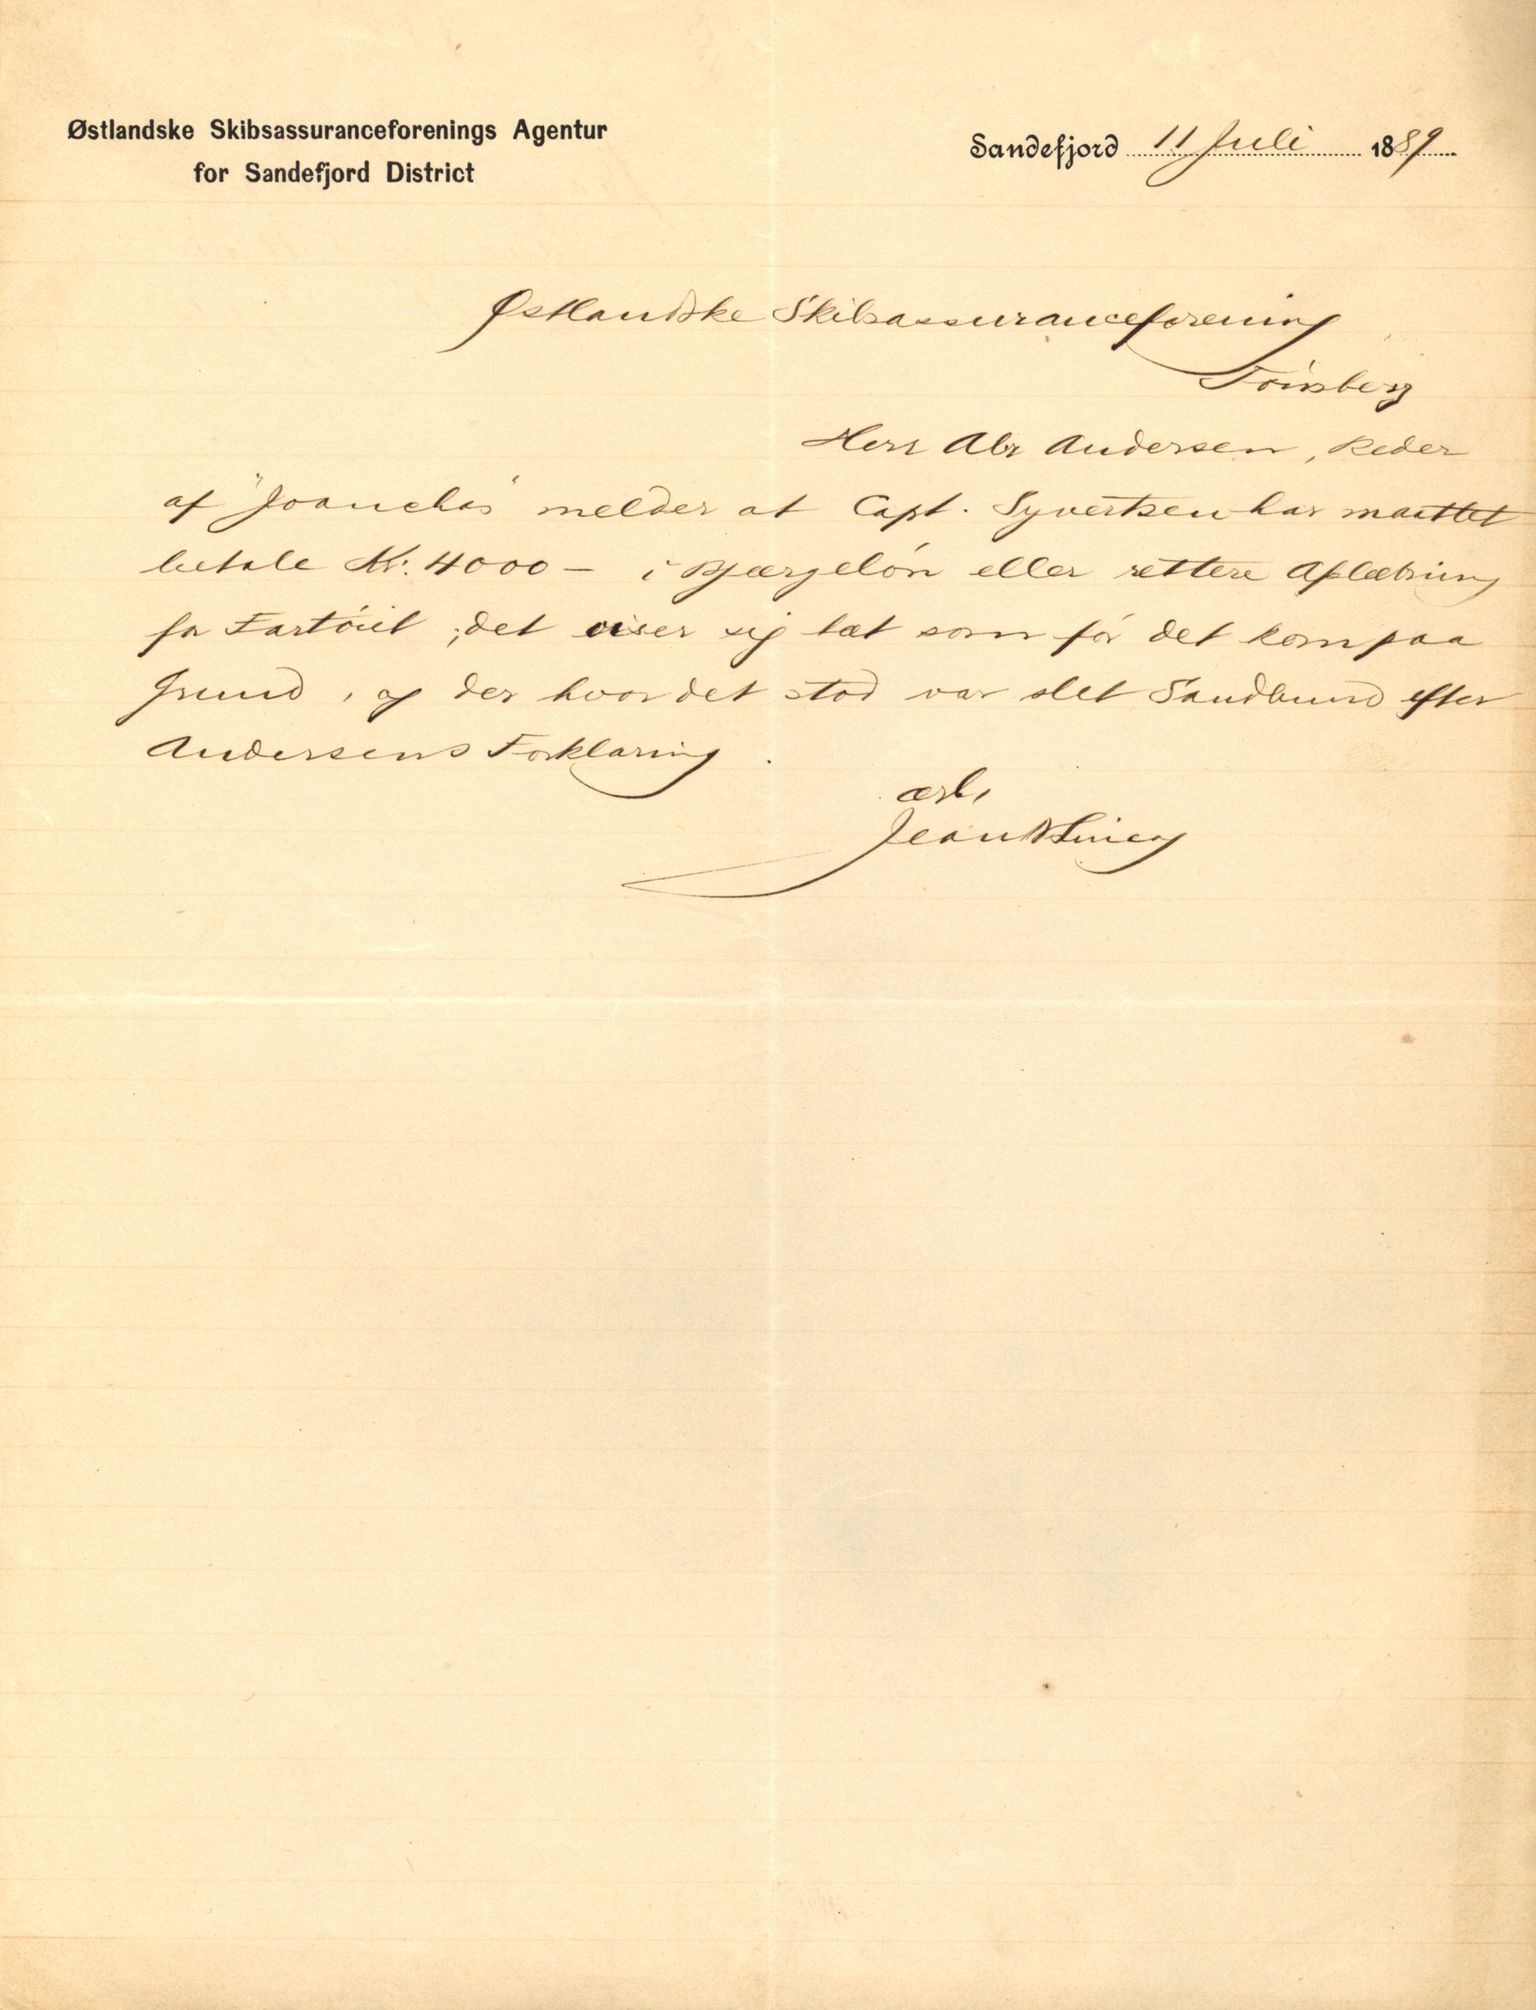 Østlandske Skibsassuranceforenings Agentur
for Sandefjord District
Sandefjord 11 Juli 1889
Østlandske Skibsassuranceforening
Tönsberg
Herr Abr Andersen, Reder
af "Joanchas" melder at Capt. Syvertsen har maattet
betale Kr. 4000 – i Bjærgelön eller rettere Aflætning
for Fartöiet ; det viser sig tæt som för det kom paa
Grund , og der hvor det stod var slet Sandbund efter
Andersens Forklaring .
ærb,
Jean